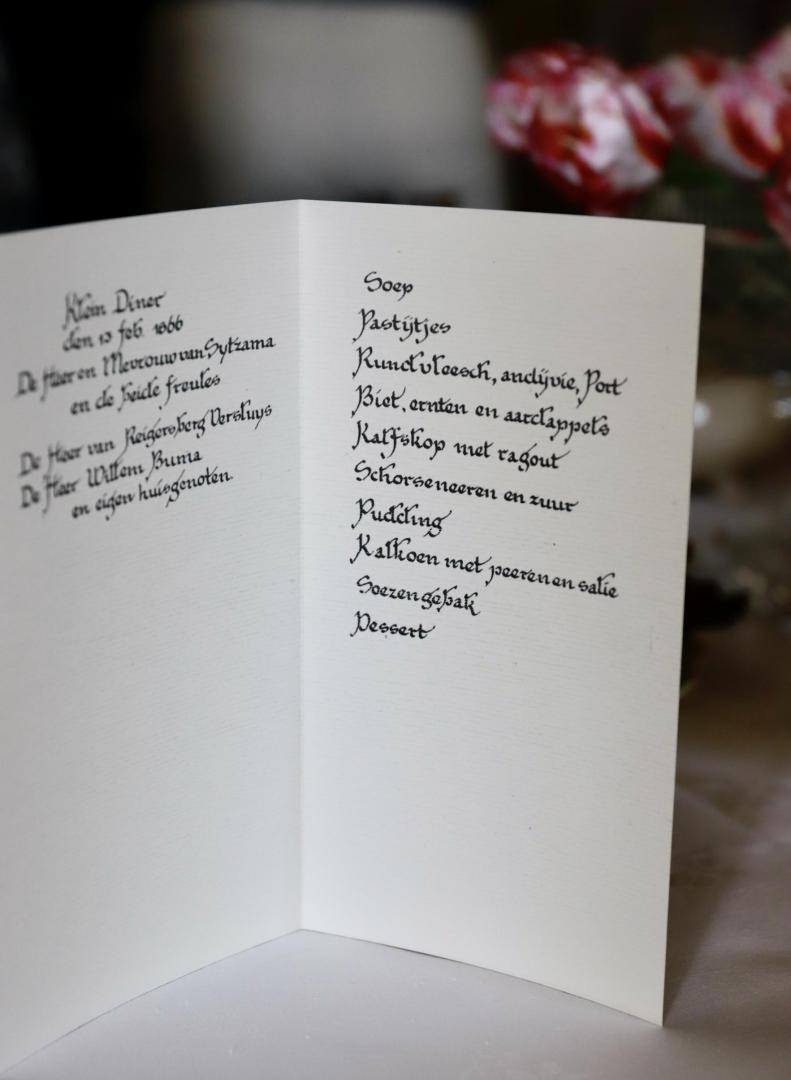 Klein Diner
den 13 feb. 1866
De Heer en Mevrouw van Sytzama
en de beide freules
De Heer van Reigersberg Versluys
De Heer Willem Buma
en eigen huisgenoten.
Soep
Pastijtjes
Rundvleesch, andijvie, Port
Biet, ernten en aardappels
Kalfskop met ragout
Schorseneeren en zuur
Pudding
Kalkoen met peeren en salie
Soezengebak
Dessert